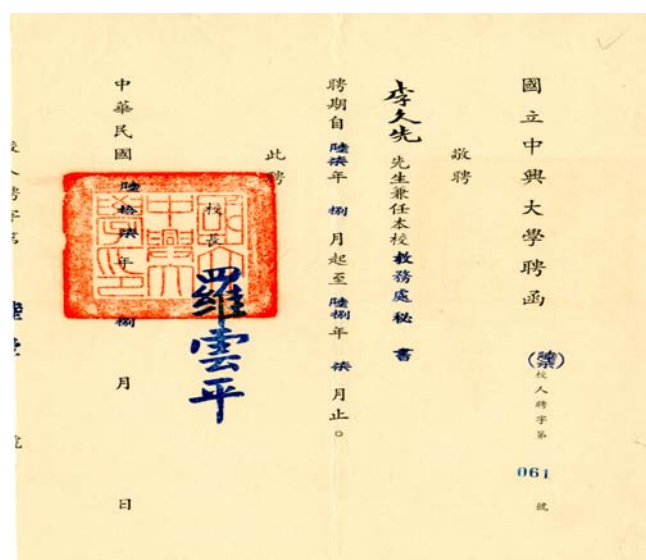 國立中興大學聘函
(陸柒)校人聘字第061號
敬聘
李久先先生兼任本校教務處秘書
聘期自陸柒年捌月起至陸捌年柒月止。
此聘
校長羅雲平
國立中興大學印
中華民國陸拾柒年捌月日
人聘字第